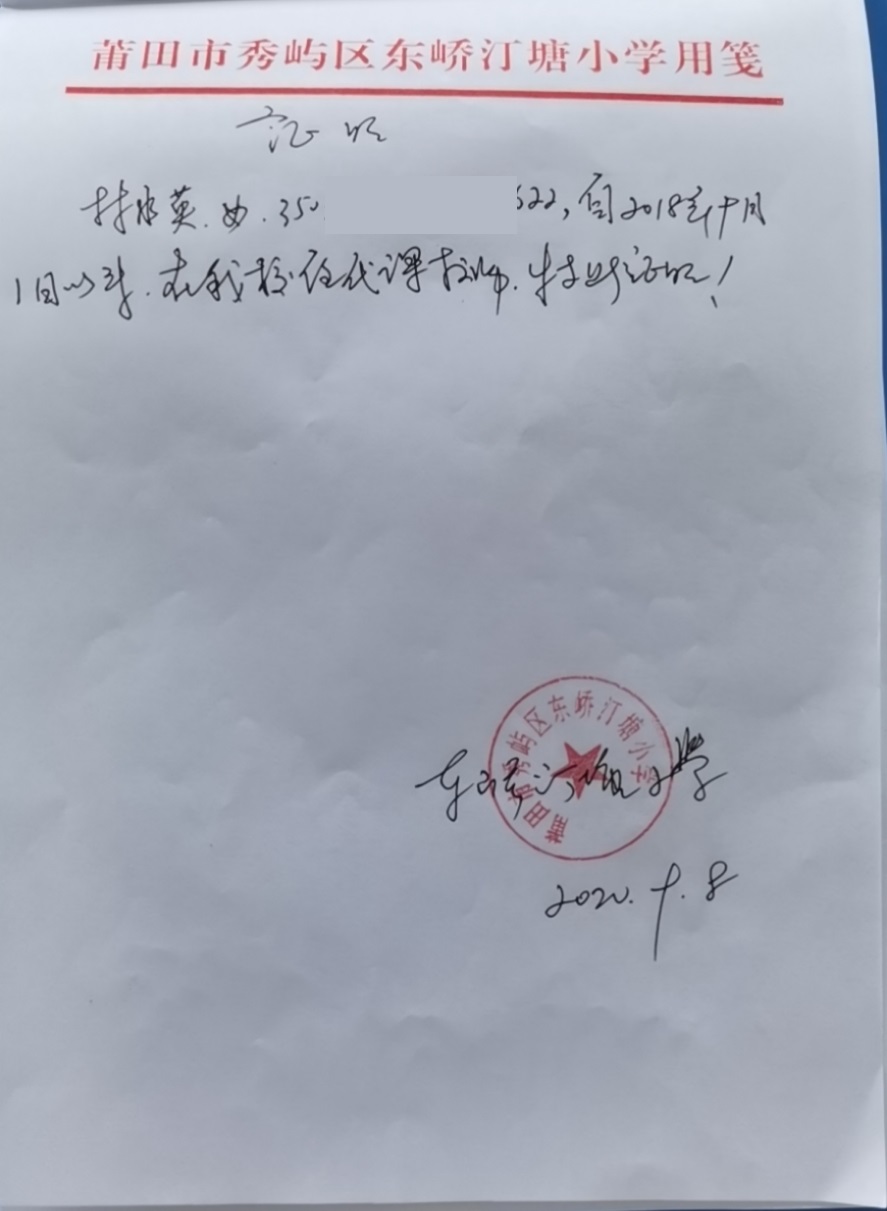 莆田市秀屿区东峤汀塘小学用笺
证明
林水英.女.350 622,自2018年9月
1日以来.在我校任代课教师.特此证明!
莆田市秀屿区东峤汀塘小学
东峤汀塘小学
2020.9.8